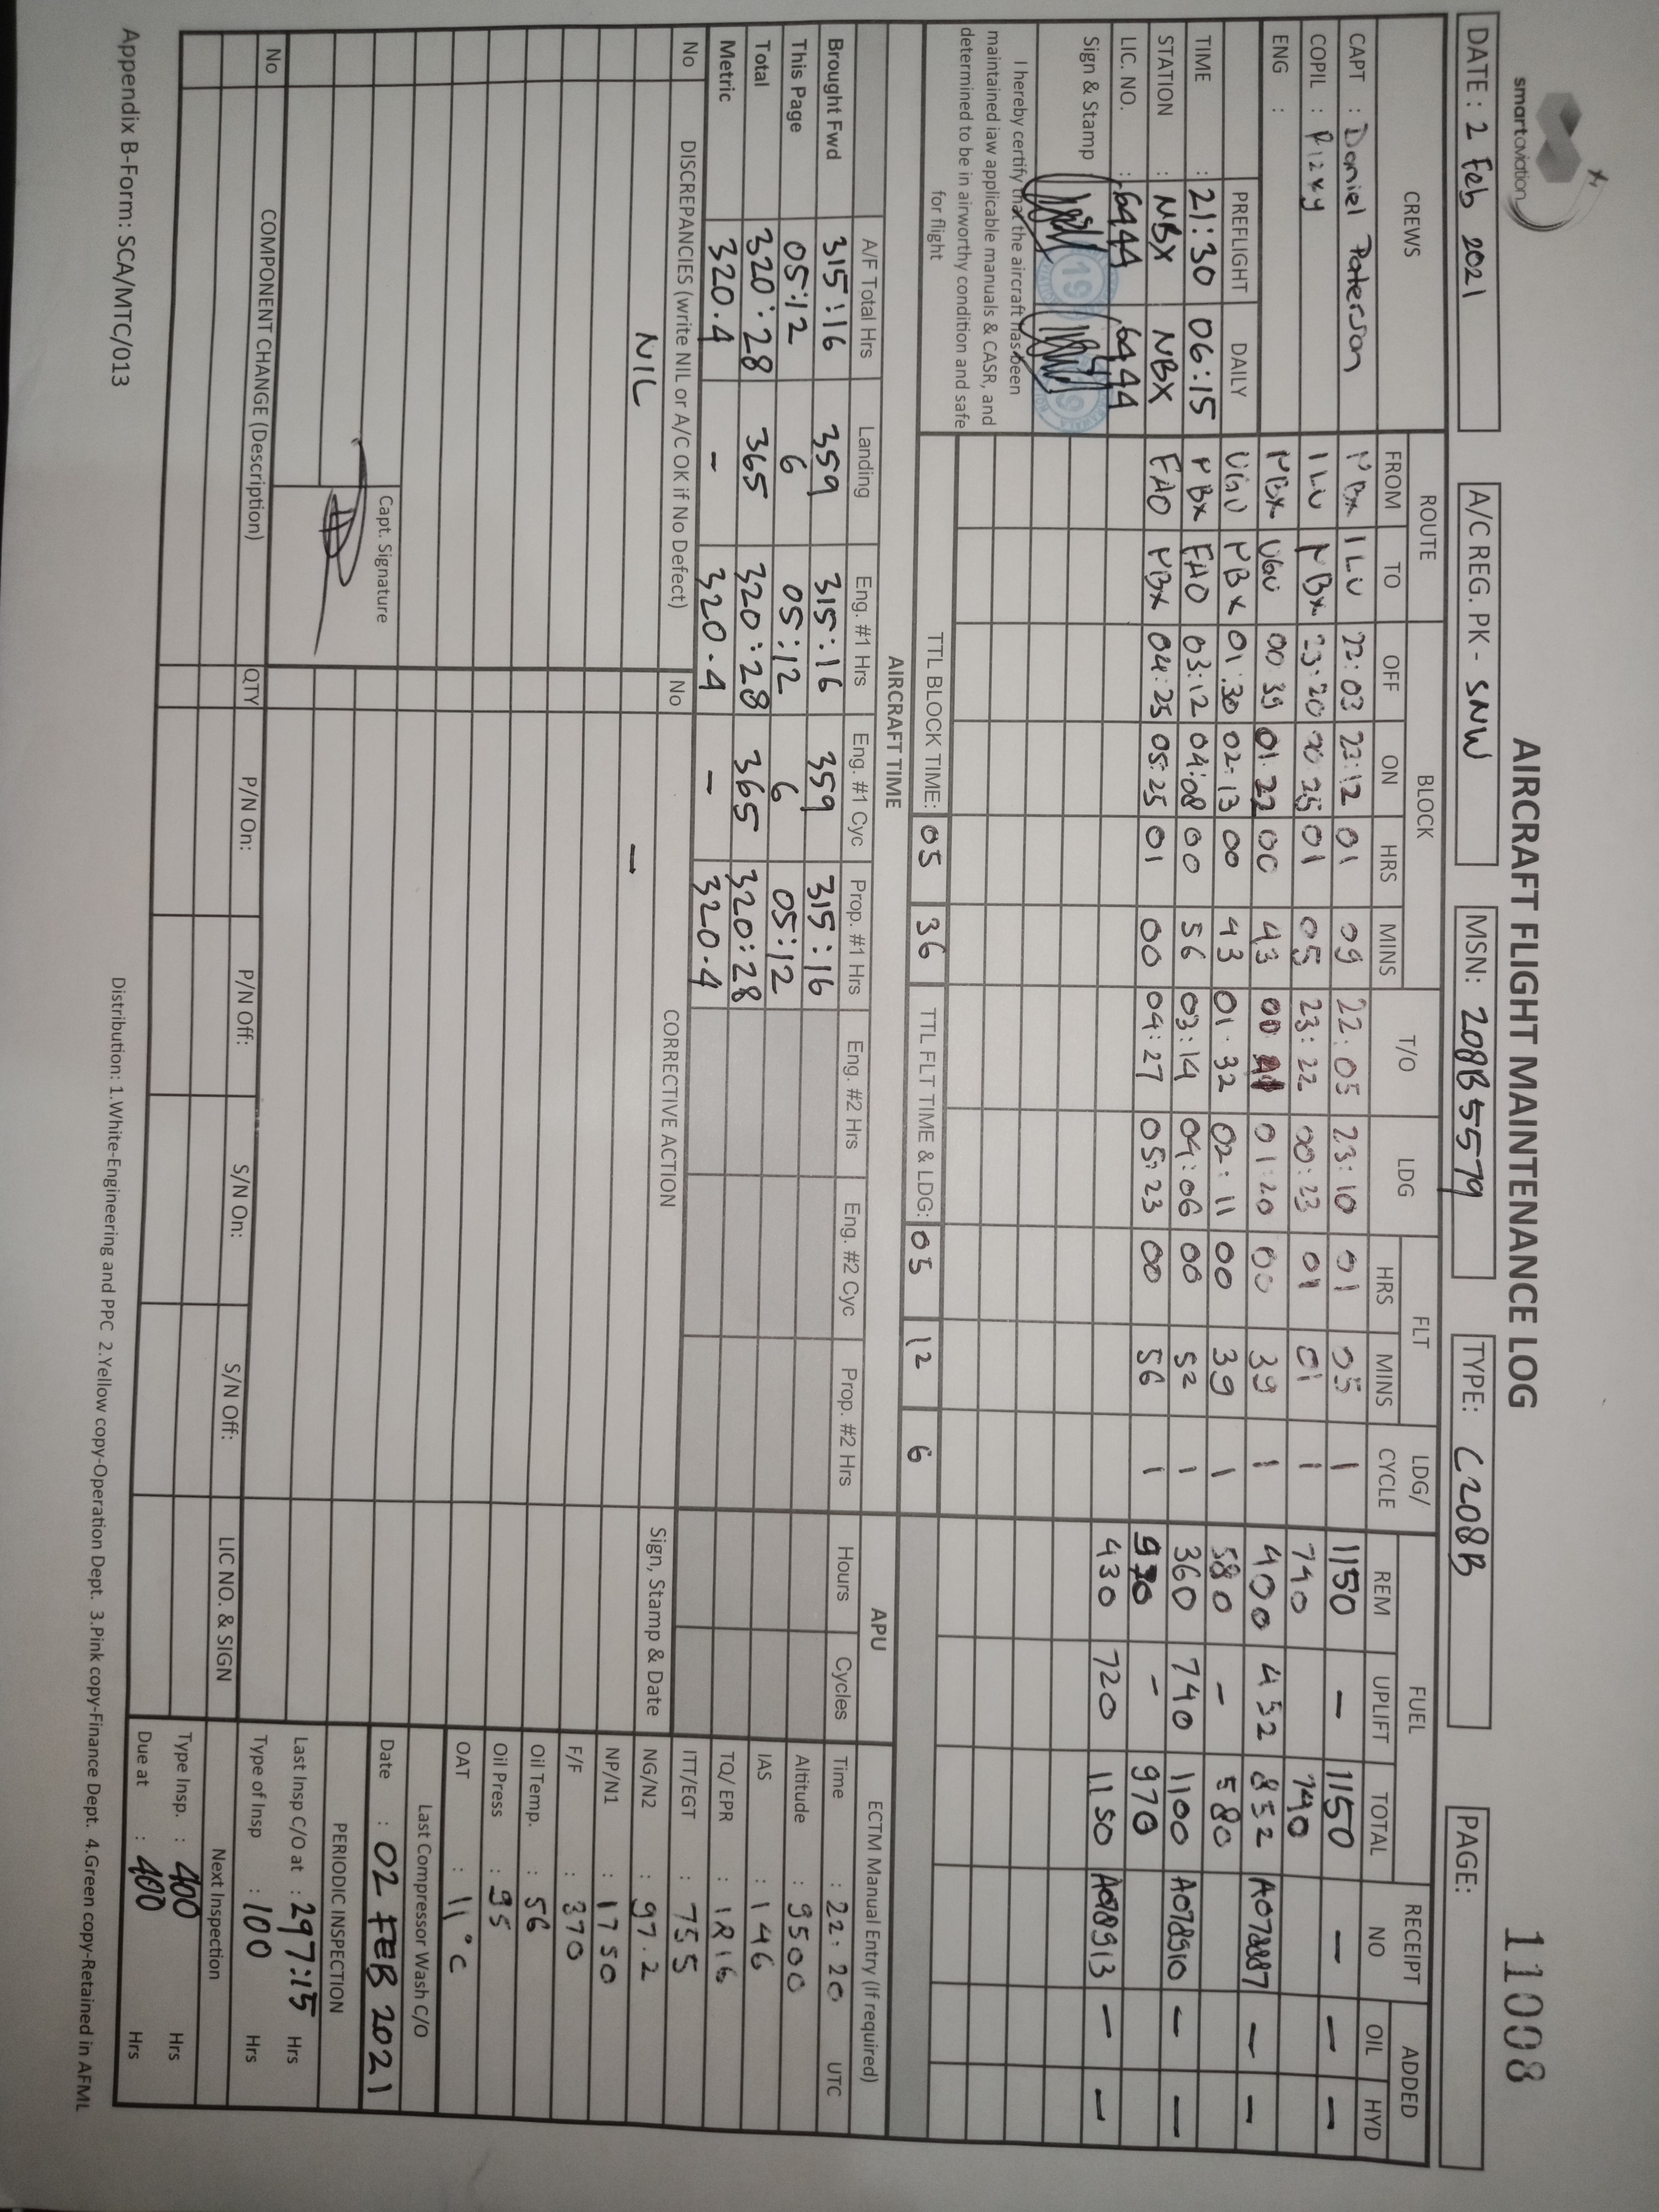 smartaviation
AIRCRAFT FLIGHT MAINTENANCE LOG
11008
DATE : 2 Feb 2021
A/C REG. PK - SNW
MSN: 208B5579
TYPE: C208B
PAGE:
CREWS ROUTE BLOCK T/O LDG FLT LDG/ CYCLE FUEL RECEIPT NO ADDED
FROM TO OFF ON HRS MINS HRS MINS REM UPLIFT TOTAL OIL HYD
CAPT : Daniel Paterson NBX ILU 22:03 23:12 01 09 22:05 23:10 01 05 1 1150 - 1150 - - -
COPIL : Rizky ILU NBX 23:20 00 25 01 05 23:22 00:23 01 01 1 740 740
ENG : NBX UGU 00 39 01 22 00 43 00 41 01:20 00 39 1 400 452 852 A072887 - -
PREFLIGHT DAILY UGU NBX 01:30 02:13 00 43 01:32 02:11 00 39 1 580 - 580
TIME : 21:30 06:15 NBX FAO 03:12 04:08 00 56 03:14 04:06 00 52 1 360 740 1100 A078910 - -
STATION : NBX NBX FAO NBX 04:25 05:25 01 00 04:27 05:23 00 56 1 970 - 970
LIC. NO. : 6444 6444 430 720 1150 A098913 - -
Sign & Stamp :
I hereby certify that the aircraft has been
maintained iaw applicable manuals & CASR, and
determined to be in airworthy condition and safe
for flight
TTL BLOCK TIME: 05 36 TTL FLT TIME & LDG: 05 12 6
AIRCRAFT TIME APU ECTM Manual Entry (If required)
A/F Total Hrs Landing Eng. #1 Hrs Eng. #1 Cyc Prop. #1 Hrs Eng. #2 Hrs Eng. #2 Cyc Prop. #2 Hrs Hours Cycles Time : 22:20 UTC
Brought Fwd 315:16 359 315:16 359 315:16 Altitude : 9500
This Page 05:12 6 05:12 6 05:12 IAS : 146
Total 320:28 365 320:28 365 320:28 TQ/ EPR : 1216
Metric 320.4 - 320.4 - 320.4 ITT/EGT : 755
No DISCREPANCIES (write NIL or A/C OK if No Defect) No CORRECTIVE ACTION Sign, Stamp & Date NG/N2 : 97.2
NIL - NP/N1 : 1750
F/F : 370
Oil Temp. : 56
Oil Press : 95
OAT : 11°C
Last Compressor Wash C/O
Capt. Signature Date : 02 FEB 2021
PERIODIC INSPECTION
Last Insp C/O at : 297:15 Hrs
No COMPONENT CHANGE (Description) QTY P/N On: P/N Off: S/N On: S/N Off: LIC NO. & SIGN Type of Insp : 100 Hrs
Next Inspection
Type Insp. : 400 Hrs
Due at : 400 Hrs
Appendix B-Form: SCA/MTC/013
Distribution: 1.White-Engineering and PPC 2.Yellow copy-Operation Dept. 3.Pink copy-Finance Dept. 4.Green copy-Retained in AFML